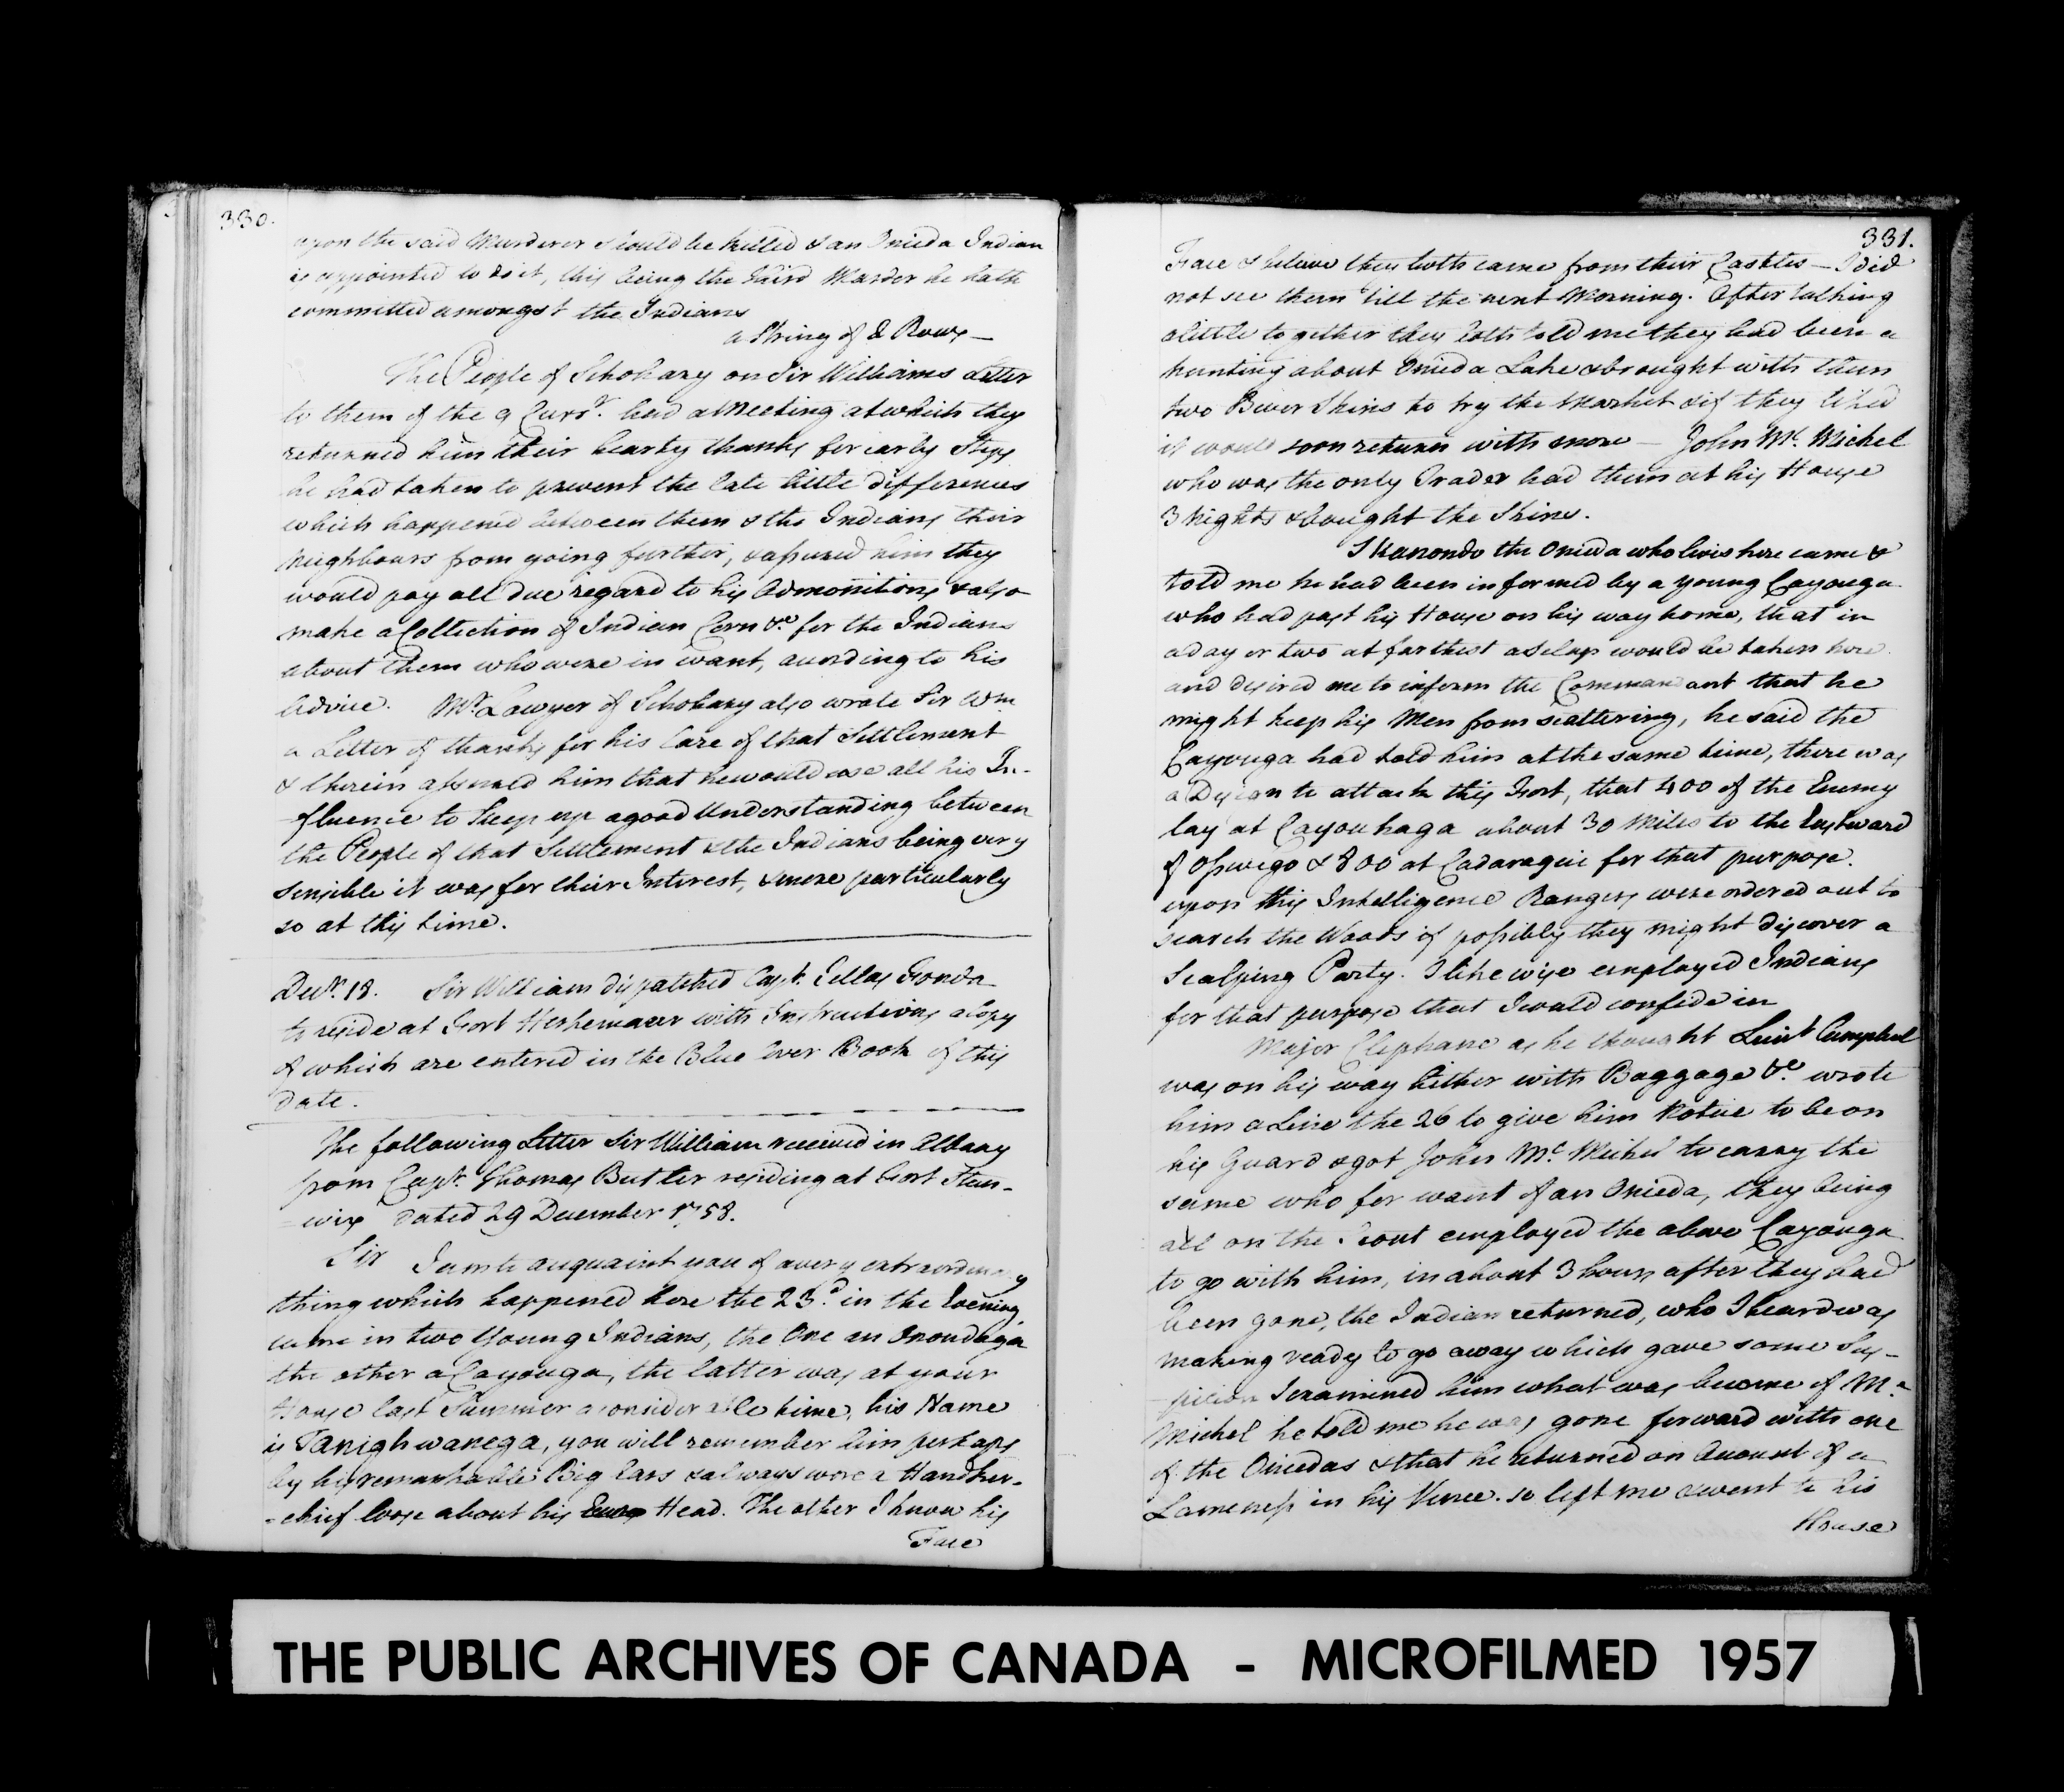 330.
upon the said Murderer should be killed & an Onieda Indian
is appointed to do it, this being the third Murder he hath
committed amongst the Indians
a String of 2 Rows —
The People of Schohary on Sir Williams Letter
to them of the 9 Curr.t had a Meeting at which they
returned him their hearty thanks for early Steps
he had taken to prevent the late little differences
which happened between them & the Indians their
Neighbours from going further, & assured him they
would pay all due regard to his Admonitions & also
make a Collection of Indian Corn &c. for the Indians
about them who were in want, according to his
Advice. Mr. Lawyer of Schohary also wrote Sir Wm
a Letter of thanks for his Care of that Settlement
& therein assured him that he would use all his In-
-fluence to keep up a good Understanding between
the People of that Settlement & the Indians being very
sensible it was for their Interest, & more particularly
so at this time.
Decr. 18. Sir William dispatched Capt. Jellas Fonda
to reside at Fort Herkemaer with Instructions a Copy
of which are entered in the Blue Cover Book of this
date.
The following Letter Sir William received in Albany
from Capt. Thomas Butler residing at Fort Stan-
-wix dated 29 December 1758.
Sir I am to acquaint you of a very extraordinary
thing which happened here the 23d. in the Evening
came in two Young Indians, the One an Onondaga
the other a Cayouga, the latter was at your
House last Summer a considerable time, his Name
is Tanighwanega, you will remember him perhaps
by his remarkable Big Ears & always wore a Handker-
-chief loose about his Head. The other I know his
Face
331.
Face & believe they both came from their Castles — I did
not see them 'till the next Morning. After talking
a little together they both told me they had been a
hunting about Onieda Lake & brought with them
two Bever Skins to try the Market & if they liked
it would soon return with more — John Mc. Michel
who was the only Trader had them at his House
3 Nights & bought the Skins.
Skanondo the Onieda who livis here came &
told me he had been informed by a young Cayouga
who had past his House on his way home, that in
a day or two at farthest a Scalp would be taken here
and desired me to inform the Commandant that he
might keep his Men from scattering, he said the
Cayouga had told him at the same time, there was
a Design to attack this Fort, that 400 of the Enemy
lay at Cayouhaga about 30 Miles to the Eastward
of Oswego & 800 at Cadaraquie for that purpose.
upon this Intelligence Rangers were ordered out to
search the Woods if possibly they might discover a
Scalping Party. I likewise employed Indians
for that purpose that I could confide in
Major Clephane as he thought Leiut Campbel
was on his way hither with Baggage &c. wrote
him a Line the 26 to give him Notice to be on
his Guard & got John Mc. Michel to carry the
same who for want of an Onieda, they being
all on the Scout employed the above Cayouga
to go with him, in about 3 hours after they had
been gone, the Indian returned, who I heard was
making ready to go away which gave some Sus-
-picion I examined him what was become of Mc.
Michel he told me he was gone forward with one
of the Oniedas & that he returned on Account of a
Lameness in his Knee. so left me & went to his
House
THE PUBLIC ARCHIVES OF CANADA - MICROFILMED 1957